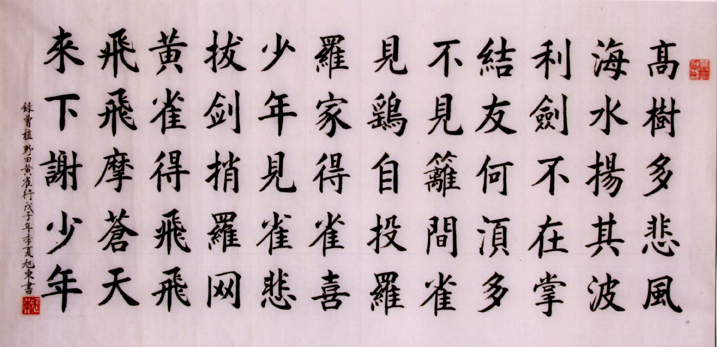 高樹多悲風
海水揚其波
利劍不在掌
結友何須多
不見籬間雀
見鷂自投羅
羅家得雀喜
少年見雀悲
拔剑捎羅网
黄雀得飛飛
飛飛摩蒼天
來下謝少年
録曹植野田黄雀行戊子年季夏旭東書